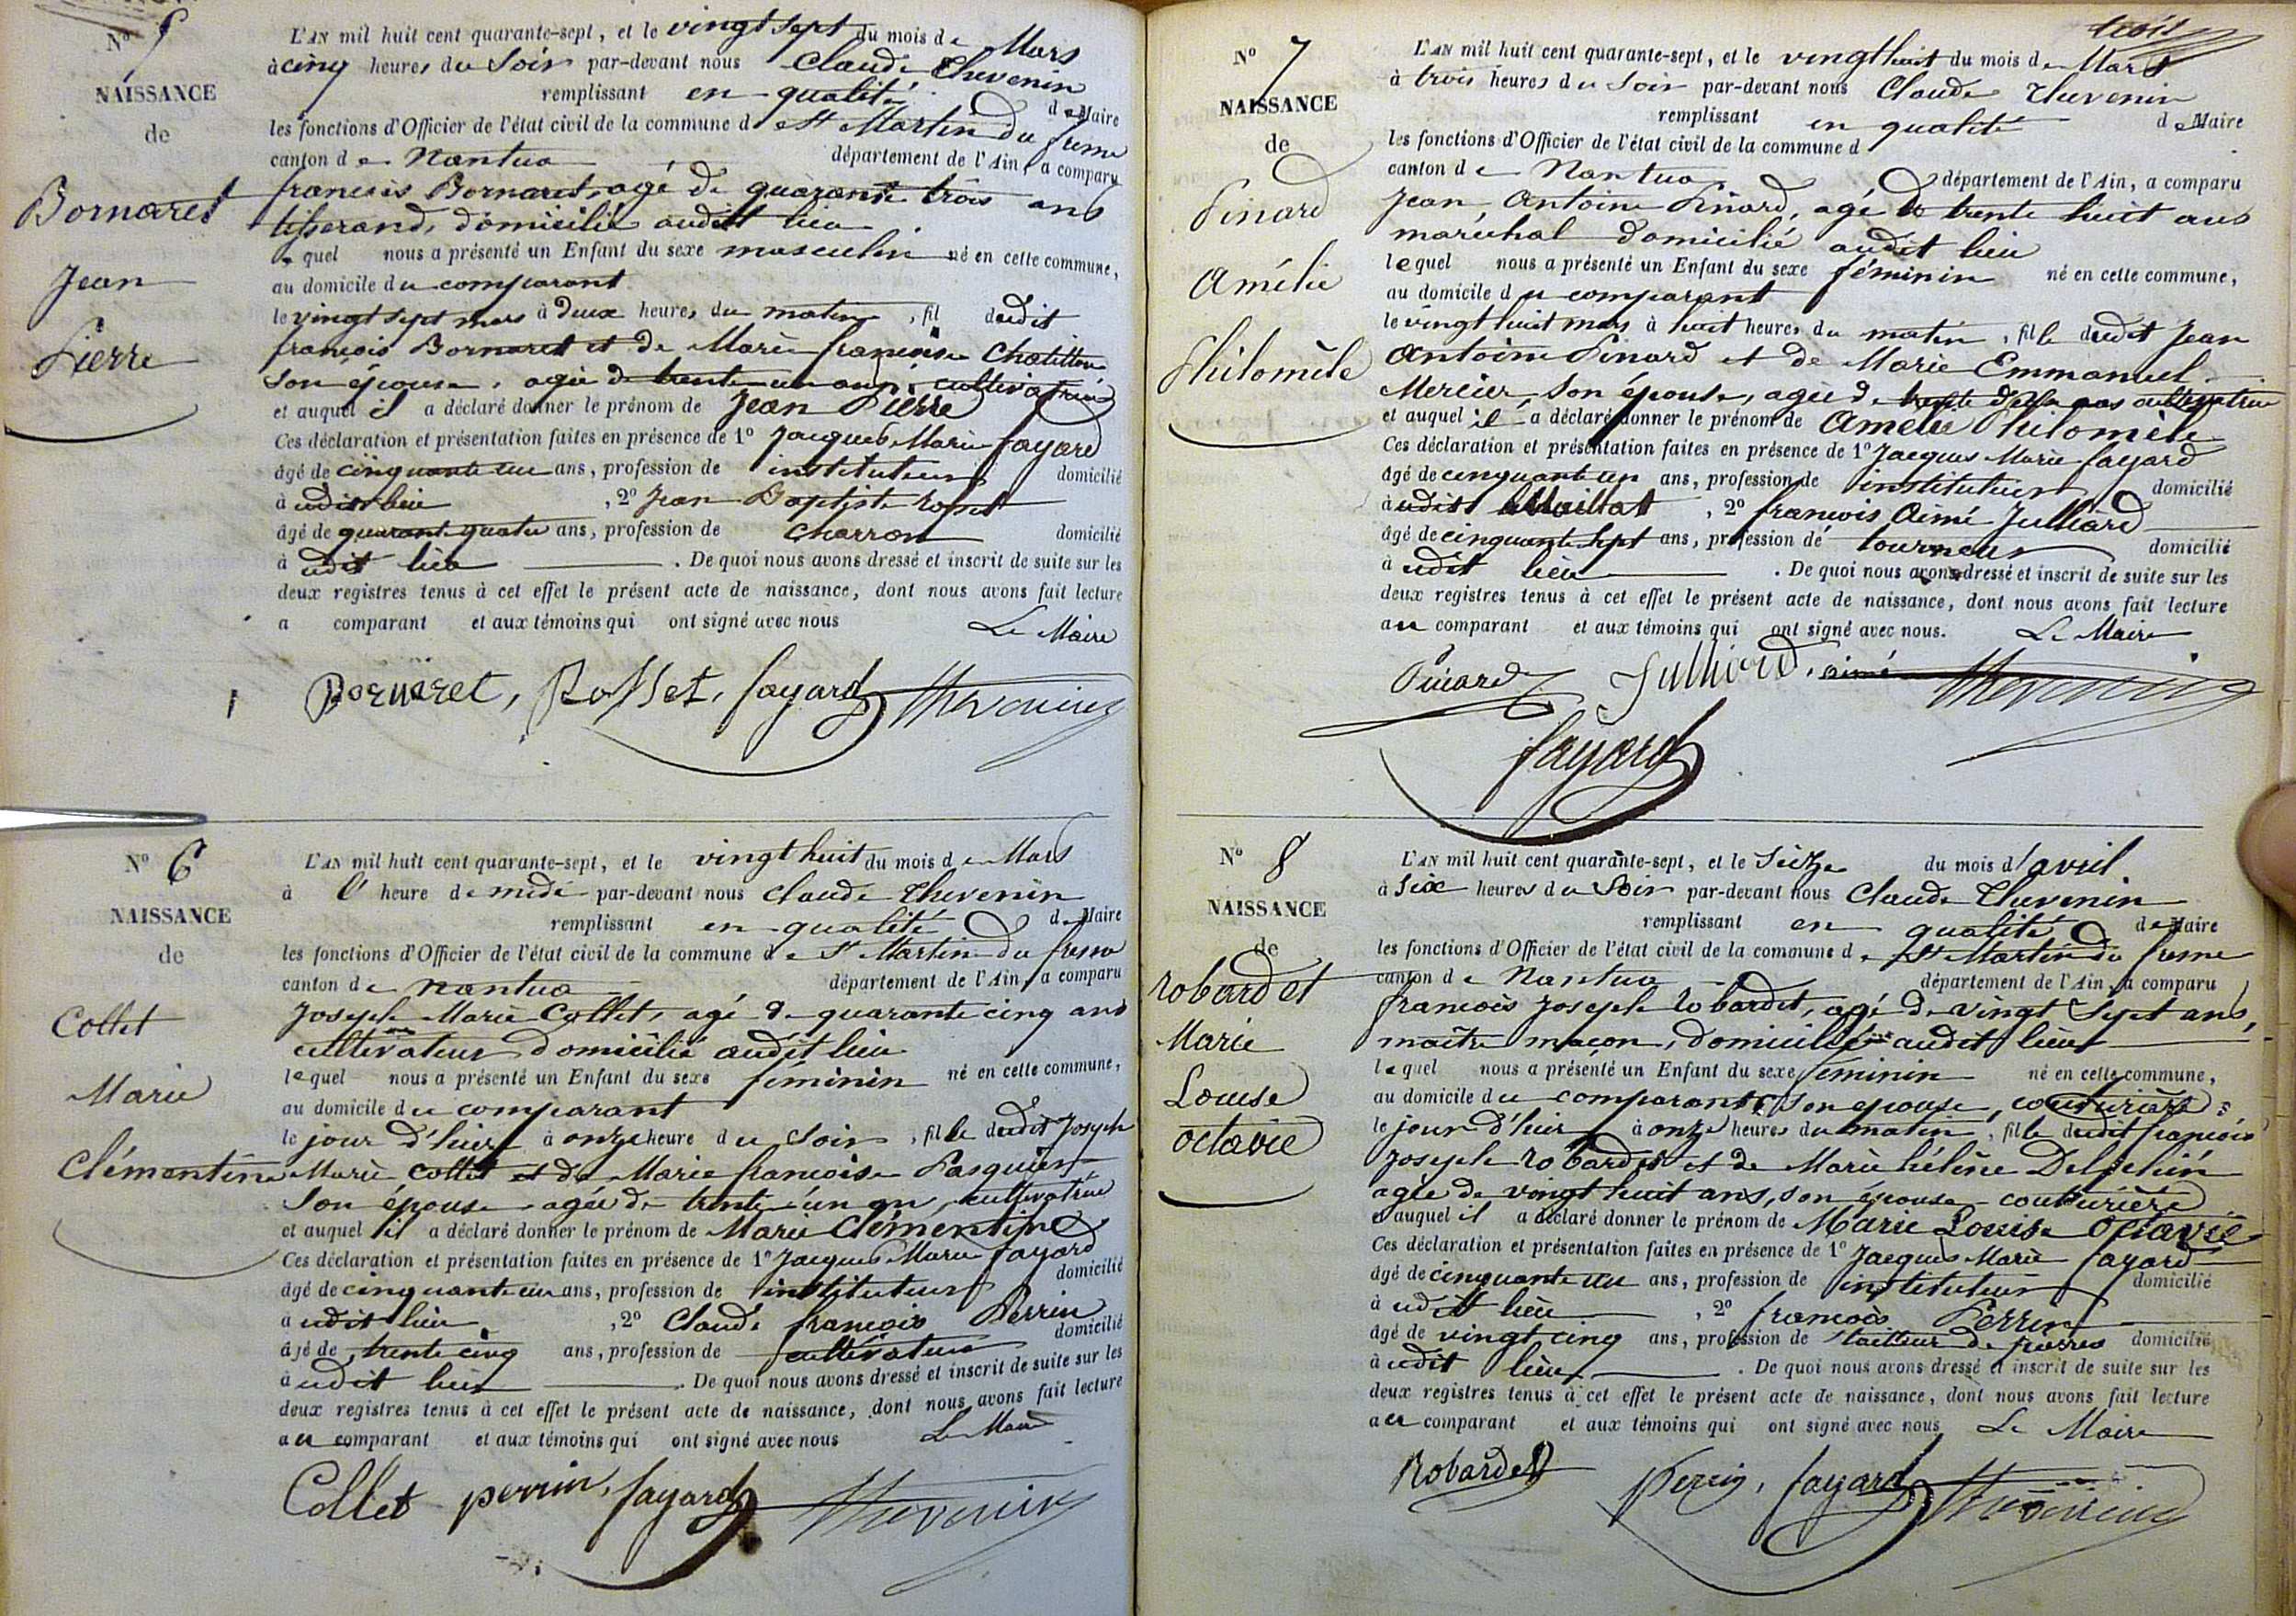 N° 5
NAISSANCE
de
Bornaret
Jean
Pierre
L'AN mil huit cent quarante-sept, et le vingt sept du mois de Mars
à cinq heures du Soir par-devant nous Claude Thevenin
remplissant en qualité de Maire
les fonctions d'Officier de l'état civil de la commune de St Martin du fresne
canton de Nantua département de l'Ain, a comparu
françois Bornaret, agé de quarante trois ans
tisserand, domicilié audit lieu
lequel nous a présenté un Enfant du sexe masculin né en cette commune,
au domicile du comparant
le vingt sept mars à deux heures du matin, fil dudit
françois Bornaret et de Marie françoise Chatillon
Son épouse, agée de trente un ans, cultivatrice
et auquel il a déclaré donner le prénom de Jean Pierre
Ces déclaration et présentation faites en présence de 1° Jacques Marie fayard
âgé de cinquante un ans, profession de instituteur domicilié
à udit lieu, 2° Jean Baptiste rosset
âgé de quarante quatre ans, profession de Charron domicilié
à udit lieu. De quoi nous avons dressé et inscrit de suite sur les
deux registres tenus à cet effet le présent acte de naissance, dont nous avons fait lecture
a comparant et aux témoins qui ont signé avec nous Le Maire
Bornaret, Rosset, fayard Thevenin
N° 6
NAISSANCE
de
Collet
Marie
Clémentine
L'AN mil huit cent quarante-sept, et le vingt huit du mois de Mars
à l' heure de midi par-devant nous Claude Thevenin
remplissant en qualité de Maire
les fonctions d'Officier de l'état civil de la commune de St Martin du fresne
canton de Nantua département de l'Ain, a comparu
Joseph Marie Collet, agé de quarante cinq ans
cultivateur domicilié audit lieu
lequel nous a présenté un Enfant du sexe féminin né en cette commune,
au domicile du comparant
le jour d'hier à onze heure du Soir, fille dudit Joseph
Marie Collet et de Marie françoise Pasquier
Son épouse agée de trente un an, cultivatrice
et auquel il a déclaré donner le prénom de Marie Clémentine
Ces déclaration et présentation faites en présence de 1° Jacques Marie fayard
âgé de cinquante un ans, profession de instituteur domicilié
à udit lieu, 2° Claude françois Perrin
âgé de trente cinq ans, profession de cultivateur domicilié
à udit lieu. De quoi nous avons dressé et inscrit de suite sur les
deux registres tenus à cet effet le présent acte de naissance, dont nous avons fait lecture
au comparant et aux témoins qui ont signé avec nous Le Maire
Collet perrin, fayard Thevenin
trois
N° 7
NAISSANCE
de
Pinard
Amélie
Philomèle
L'AN mil huit cent quarante-sept, et le vingt huit du mois de Mars
à trois heures du Soir par-devant nous Claude Thevenin
remplissant en qualité de Maire
les fonctions d'Officier de l'état civil de la commune d
canton de Nantua département de l'Ain, a comparu
Jean Antoine Pinard, agé de trente huit ans
maréchal domicilié audit lieu
lequel nous a présenté un Enfant du sexe féminin né en cette commune,
au domicile du comparant
le vingt huit mars à huit heures du matin, fille dudit Jean
Antoine Pinard et de Marie Emmanuel
Mercier, Son épouse, agée de trente ans cultivatrice
et auquel il a déclaré donner le prénom de Amélie Philomèle
Ces déclaration et présentation faites en présence de 1° Jacques Marie fayard
âgé de cinquante un ans, profession de instituteur domicilié
à udit Maillat, 2° françois Aimé Julliard
âgé de cinquante sept ans, profession de tourneur domicilié
à udit lieu. De quoi nous avons dressé et inscrit de suite sur les
deux registres tenus à cet effet le présent acte de naissance, dont nous avons fait lecture
au comparant et aux témoins qui ont signé avec nous. Le Maire
Pinard Julliard, aimé Thevenin
fayard
N° 8
NAISSANCE
de
robardet
Marie
Louise
octavie
L'AN mil huit cent quarante-sept, et le Seize du mois d'avril
à Six heures du Soir par-devant nous Claude Thevenin
remplissant en qualité de Maire
les fonctions d'Officier de l'état civil de la commune de St Martin du fresne
canton de Nantua département de l'Ain, a comparu
françois Joseph robardet, agé de vingt Sept ans,
maître maçon, domicilié audit lieu
lequel nous a présenté un Enfant du sexe féminin né en cette commune,
au domicile du comparant, Son épouse, couturière
le jour d'hier à onze heures du matin, fille dudit françois
Joseph robardet et de Marie hélène Delphin
agée de vingt huit ans, son épouse couturière
et auquel il a déclaré donner le prénom de Marie Louise Octavie
Ces déclaration et présentation faites en présence de 1° Jacques Marie fayard
âgé de cinquante un ans, profession de instituteur domicilié
à udit lieu, 2° françois Perrin
âgé de vingt cinq ans, profession de tailleur de pierres domicilié
à udit lieu. De quoi nous avons dressé et inscrit de suite sur les
deux registres tenus à cet effet le présent acte de naissance, dont nous avons fait lecture
au comparant et aux témoins qui ont signé avec nous Le Maire
Robardet perrin, fayard Thevenin